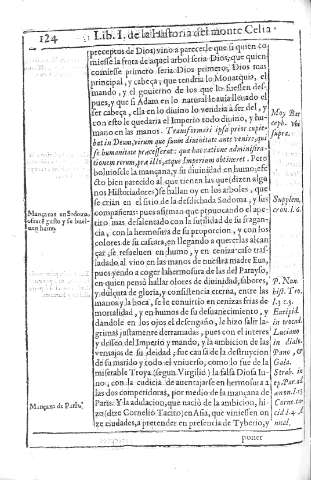 124 Lib. I. de la Historia del monte Celia
preceptos de Dios) vino a parecerle que si quien co
miesse la fruta de aquel arbol seria Dios; que quien
comiesse primero seria Dios primero, Dios mas
principal, y cabeça; que tendria lo Monarquia, el
mando, y el gouierno de los que lo fuessen des-
pues, y que si Adam en lo natural le auia lleuado el
ser cabeça, ella en lo diuino lo vendria a ser del, y
con esto le quedaria el Imperio todo diuino, y hu-
mano en las manos.
se humanitas præcesserat: que hac ratione administra-
tionem rerum, præ illo, atque Imperium obtineret. Pero
boluiosele la mançana, y su diuinidad en humo, efe
cto bien parecido al que tienen las que (dizen algu
nos Historiadores) se hallan oy en los arboles, que
se crian en el sitio de la desdichada Sodoma, y sus
compañeras: pues afirman que prouocando el ape-
tito mas desalentado con la suauidad de su fragan-
cia, con la hermosura de su proporcion, y con los
colores de su cascara, en llegando a quererlas alcan
çar, se resueluen en humo, y en ceniza. caso tras-
ladado al viuo en las manos de nuestra madre Eua,
pues yendo a coger la hermosura de las del Parayso,
en quien pensò hallar colores de diuinidad, sabores,
y dulçura de gloria, y consistencia eterna, entre las
manos, y la boca, se le conuirtio en cenizas frias de
mortalidad, y en humos de su desuanecimiento, y
dandole en los ojos el desengaño, le hizo salir la-
grimas justamente derramadas, pues con el interes
y desseo del Imperio y mando, y la ambicion de las
ventajas de su deidad, fue causa de la destruycion
de su marido y todo el vniuerso, como lo fue de la
miserable Troya (segun Virgilio) la falsa Diosa Iu-
no, con la codicia de auentajarse en hermosura a
las dos competidoras, por medio de la mançana de
Paris. Y la adulacion, que naciò de la ambicion, hi-
zo (dize Cornelio Tacito) en Asia, que viniessen on
ze ciudades, a pretender en presencia de Tyberio, y
poner
Mançanas en Sodoma,
Mançana de Paris.
Moy. Bar
ceph. vbi
supra.
Supplem.
cron. l. 6.
P. Non.
hist. Tro.
Euripid.
in troad.
Luciano
in dialo.
Gala.
Strab. in
Corne. ta
cid. l. 4. A
nnal.